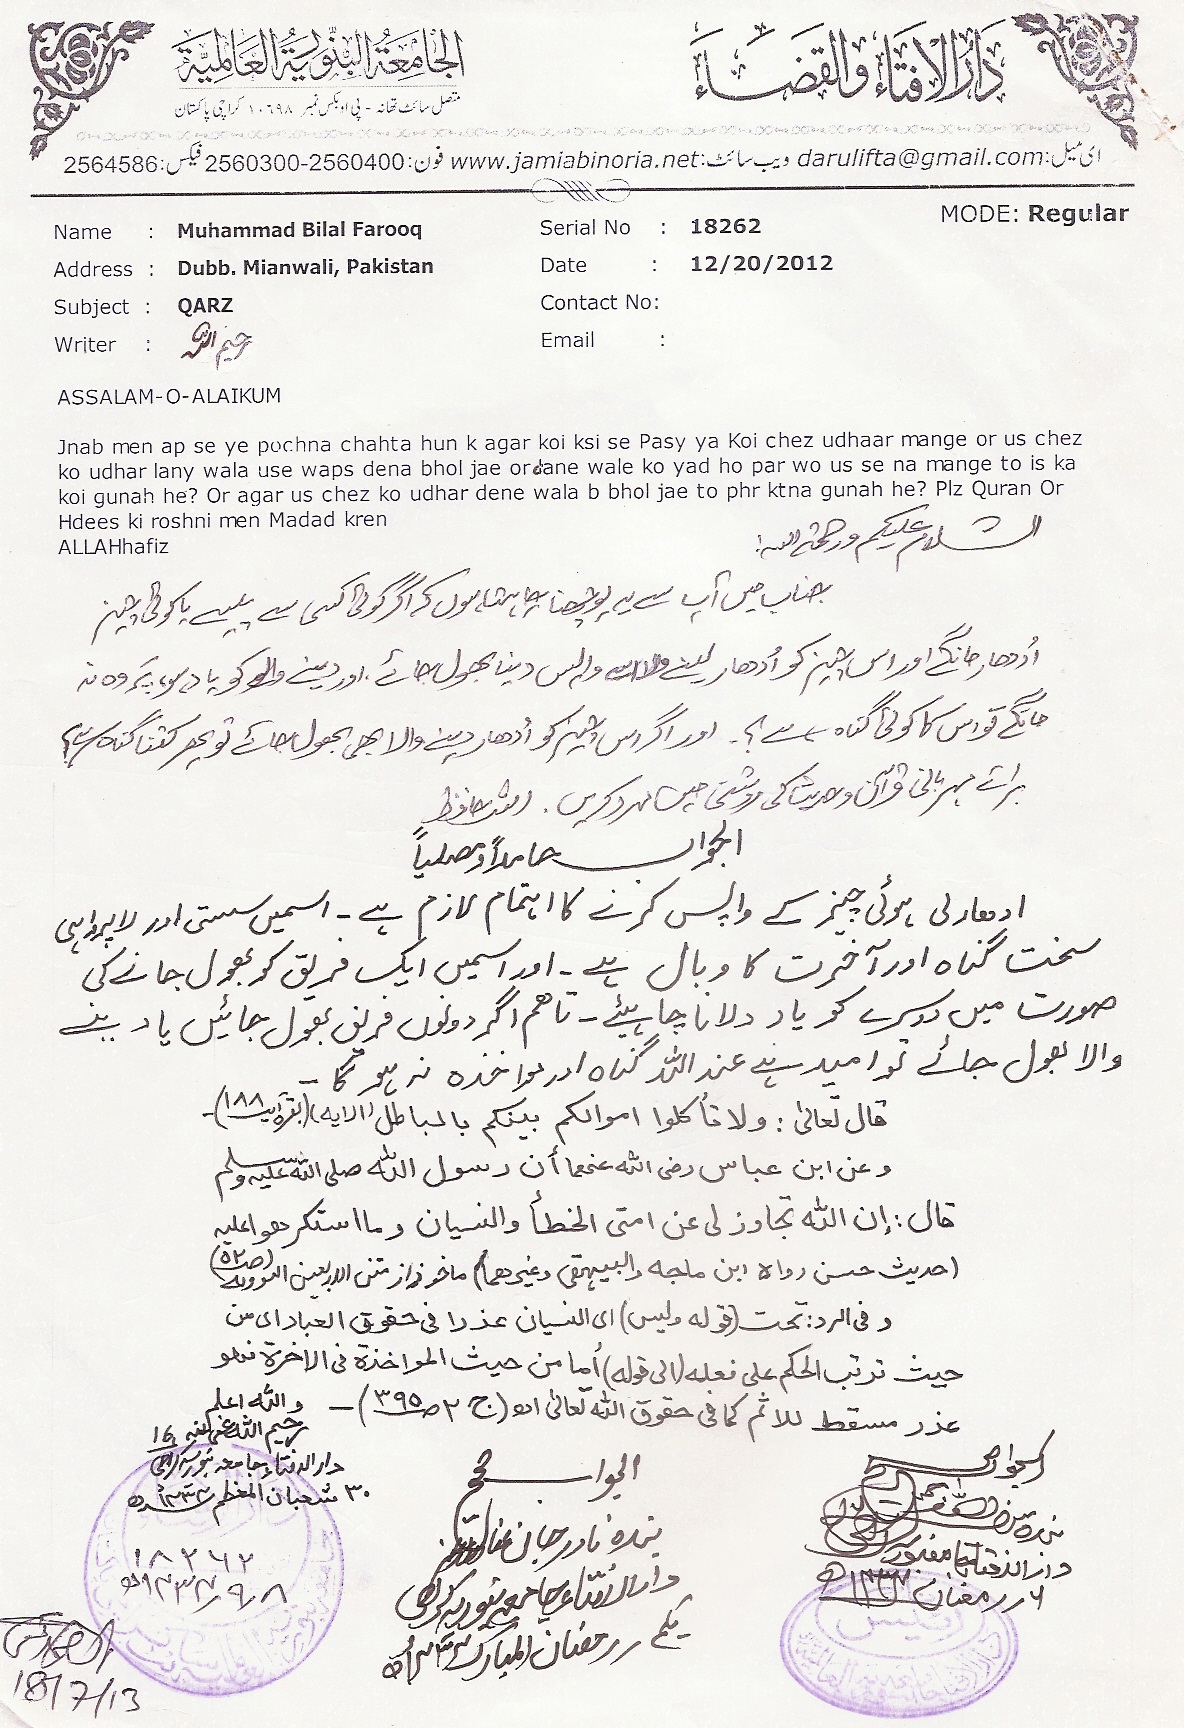 الجامعة البنورية العالمية
دار الافتاء والقضاء
متصل سائٹ تھانہ - پی او بکس نمبر ۱۰۶۹۸ کراچی پاکستان
ای میل: darulifta@gmail.com ویب سائٹ: www.jamiabinoria.net فون: 2560300-2560400 فیکس: 2564586
MODE: Regular
Name : Muhammad Bilal Farooq
Serial No : 18262
Address : Dubb. Mianwali, Pakistan
Date : 12/20/2012
Subject : QARZ
Contact No:
Writer : رحیم اللہ
Email :
ASSALAM-O-ALAIKUM
Jnab men ap se ye pochna chahta hun k agar koi ksi se Pasy ya Koi chez udhaar mange or us chez
ko udhar lany wala use waps dena bhol jae or dane wale ko yad ho par wo us se na mange to is ka
koi gunah he? Or agar us chez ko udhar dene wala b bhol jae to phr ktna gunah he? Plz Quran Or
Hdees ki roshni men Madad kren
ALLAHhafiz
السلام علیکم ورحمۃ اللہ!
جناب میں آپ سے یہ پوچھنا چاہتا ہوں کہ اگر کوئی کسی سے پیسے یا کوئی چیز
اُدھار مانگے اور اس چیز کو اُدھار لینے والا اسے واپس دینا بھول جائے، اور دینے والے کو یاد ہو، پَر وہ نہ
مانگے تو اس کا کوئی گناہ ہے؟۔ اور اگر اس چیز کو اُدھار دینے والا بھی بھول جائے تو پھر کتنا گناہ ہے؟
برائے مہربانی قرآن و حدیث کی روشنی میں مدد کریں۔ اللہ حافظ
الجواب حامداً ومصلیاً
ادھار لی ہوئی چیز کے واپس کرنے کا اہتمام لازم ہے۔ اسمیں سستی اور لاپرواہی
سخت گناہ اور آخرت کا وبال ہے۔ اور اسمیں ایک فریق کو بھول جانے کی
صورت میں دوسرے کو یاد دلانا چاہیئے۔ تاھم اگر دونوں فریق بھول جائیں یا دینے
والا بھول جائے تو امید ہے عند اللہ گناہ اور مواخذہ نہ ہو گا۔
قال تعالیٰ: ولا تأکلوا اموالکم بینکم بالباطل (الایه) (بقرۃ آیت ۱۸۸)۔
وعن ابن عباس رضی الله عنهما أن رسول الله صلی الله علیه وسلم
قال: إن الله تجاوز لی عن امتی الخطأ والنسیان وما استکرهوا علیه
(حدیث حسن رواہ ابن ماجه والبیهقی وغیرهما) ماخوذ از متن الاربعین النوویه (ص۵۲)
وفی الرد: تحت (قوله ولیس) ای النسیان عذرا فی حقوق العباد ای من
حیث ترتب الحکم علی فعله (الی قوله) أما من حیث المواخذة فی الاخرة فهو
عذر مسقط للاثم کما فی حقوق الله تعالیٰ اھ (ج ۲ ص ۳۹۵)۔
والله اعلم
رحیم اللہ عفی عنہ
دار الافتاء جامعہ بنوریہ کراچی
۳۰ شعبان المعظم ۱۴۳۴ھ
۱۸۲۶۲
۱۴۳۴/۹/۸ھ
18/7/13
الجواب صحیح
بندہ نادر جان
دار الافتاء جامعہ بنوریہ کراچی
یکم رمضان المبارک ۱۴۳۴ھ
الجواب صحیح
دار الافتاء جامعہ بنوریہ
۶ رمضان ۱۴۳۴ھ